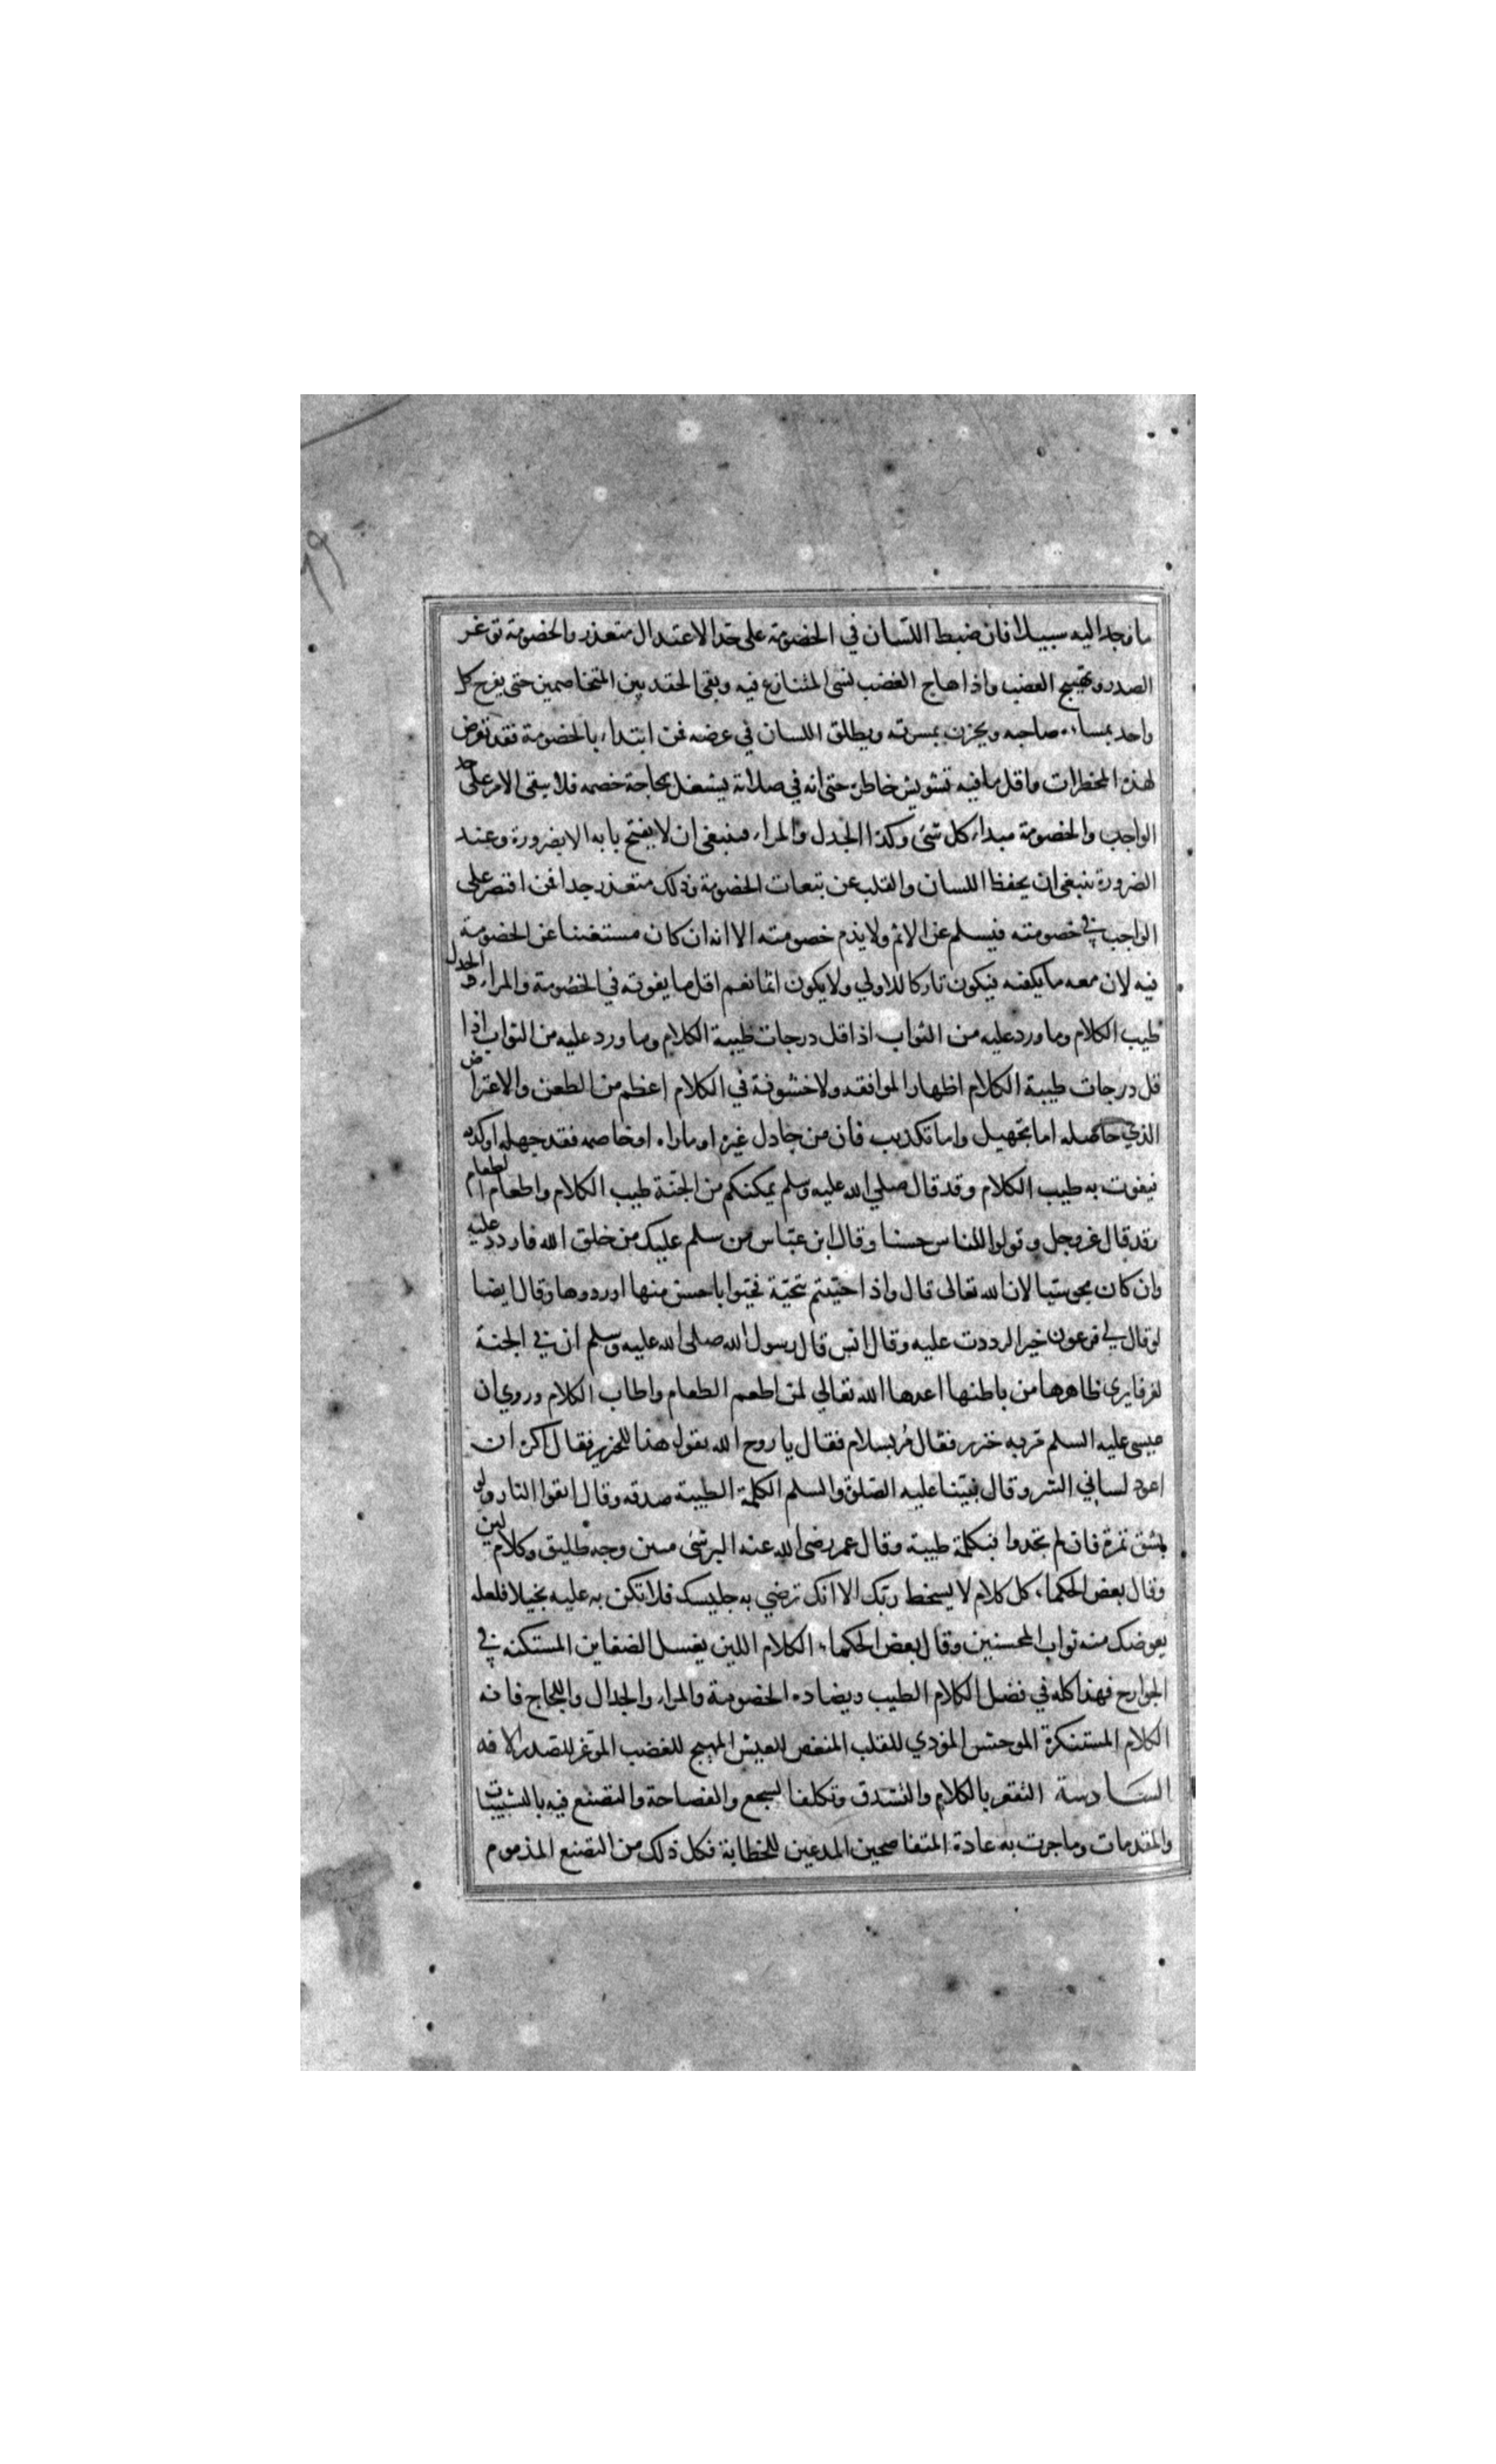 ما وجد اليه سبيلا فان ضبط اللسان في الخصومة على حد الاعتدال متعذر والخصومة توغر
الصدر وتهيج الغضب واذا هاج الغضب نسى المتنازع فيه وبقى الحقد بين المتخاصمين حتى يفرح كل
واحد بمساءة صاحبه ويحزن بمسرته ويطلق اللسان في عرضه فمن ابتداء بالخصومة فقد تعرض
لهذه المخطرات واقل ما فيه تشويش خاطره حتى انه في صلاته يشتغل بحاجة خصمه فلا يبقى الامر على حد
الواجب والخصومة مبداء كل شئ وكذا الجدل والمراء فينبغى ان لا يفتح بابه الا بضرورة وعند
الضرورة ينبغى ان يحفظ اللسان والقلب عن تبعات الخصومة وذلك متعذر جدا فمن اقتصر على
الواجب في خصومته فيسلم عن الاثم ولا يذم خصومته الا انه ان كان مستغنيا عن الخصومة
فيه لان معه ما يكفيه فيكون تاركا للاولي ولا يكون اثما نعم اقل ما يفوته في الخصومة والمراء والجدل
طيب الكلام وما ورد عليه من الثواب اذ اقل درجات طيبة الكلام وما ورد عليه من الثواب اذا
قل درجات طيبة الكلام اظهار الموافقه ولا خشونة في الكلام اعظم من الطعن والاعتراض
الذي حاصله اما تجهيل واما تكذيب فان من جادل غيره او ماراه او خاصمه فقد جهله او كذبه
فيفوت به طيب الكلام وقد قال صلي الله عليه وسلم يمكنكم من الجنة طيب الكلام واطعام الطعام
وقد قال عز وجل وقولوا للناس حسنا وقال ابن عباس من سلم عليك من خلق الله فاردد عليه
وان كان مجوسيا لان الله تعالى قال واذا حييتم بتحية فحيوا باحسن منها او ردوها وقال ايضا
لو قال لي فرعون خيرا لرددت عليه وقال انس قال رسول الله صلى الله عليه وسلم ان في الجنة
لغرفا يرى ظاهرها من باطنها اعدها الله تعالي لمن اطعم الطعام واطاب الكلام وروي ان
عيسى عليه السلم مر به خنزير فقال مُر بسلام فقال يا روح الله تقول هذا للخنزير فقال اكره ان
اعود لساني الشر وقال نبينا عليه الصلوة والسلم الكلمة الطيبة صدقه وقال اتقوا النار ولو
بشق تمرة فان لم تجدوا فبكلمة طيبة وقال عمر رضى الله عنه البر شئ هين وجه طليق وكلام لين
وقال بعض الحكماء كل كلام لا يسخط ربك الا انك ترضي به جليسك فلا تكن به عليه بخيلا فلعله
يعوضك منه ثواب المحسنين وقال بعض الحكماء الكلام اللين يغسل الضغاين المستكنه في
الجوارح فهذا كله في فضل الكلام الطيب ويضاده الخصومة والمراء والجدال واللجاج فانه
الكلام المستنكرة الموحش المؤذي للقلب المنغص للعيش المهيج للغضب الموغر للصدر الافه
السادسة التقعر بالكلام والتشدق وتكلف السجع والفصاحة والتصنع فيه بالتشبيبات
والمقدمات وما جرت به عادة المتفاصحين المدعين للخطابة فكل ذلك من التصنع المذموم